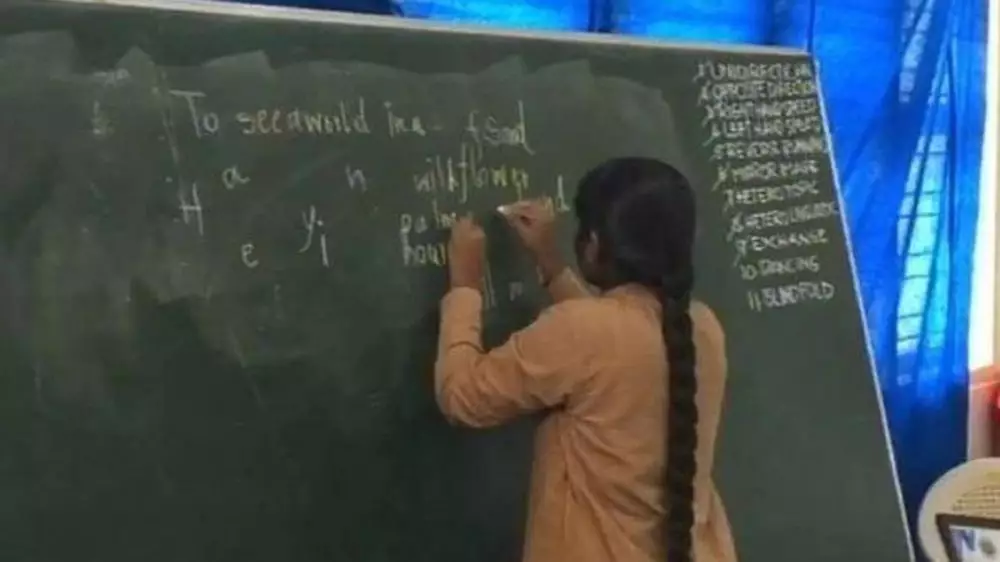 To see a world in a
wildflower
H
a n
e y i
palm
hour
1) UNIDIRECTIONAL
2) OPPOSITE DIRECTION
3) RIGHT HAND SPEED
4) LEFT HAND SPEED
5) REVERSE RUNNING
6) MIRROR IMAGE
7) HETEROTOPIC
8) HETEROLINGUISTIC
9) EXCHANGE
10) DANCING
11) BLINDFOLD